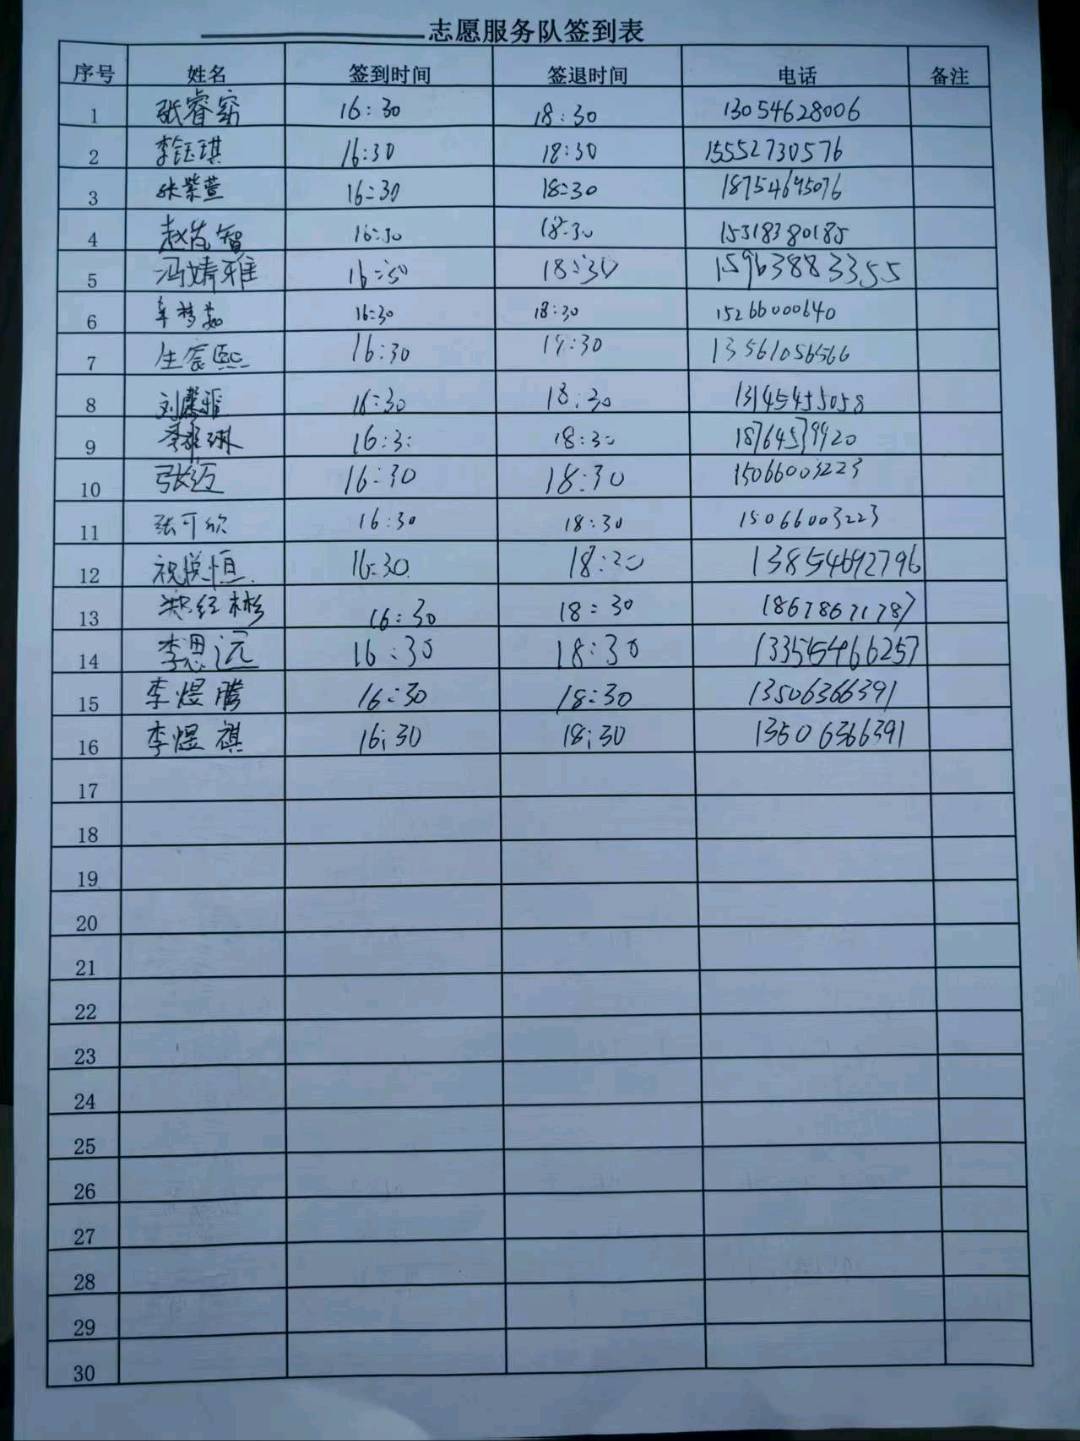 志愿服务队签到表
序号 姓名 签到时间 签退时间 电话 备注
1 张睿窈 16:30 18:30 13054628006
2 李钰琪 16:30 18:30 15552730576
3 张紫萱 16:30 18:30 18754645076
4 赵 智 16:30 18:30 15318380185
5 冯婧雅 16:30 18:30 15963883355
6 辛梦茹 16:30 18:30 15266000640
7 生 熙 16:30 19:30 13561056566
8 刘馨雅 16:30 18:30 13145455058
9 琳 16:30 18:30 18764579920
10 张 16:30 18:30 15066003223
11 张可欣 16:30 18:30 15066003223
12 祝悦恒 16:30 18:20 13854692796
13 彬 16:30 18:30 18678671787
14 李思远 16:30 18:30 13354546257
15 李煜腾 16:30 18:30 13506366391
16 李煜祺 16:30 18:30 13506366391
17
18
19
20
21
22
23
24
25
26
27
28
29
30